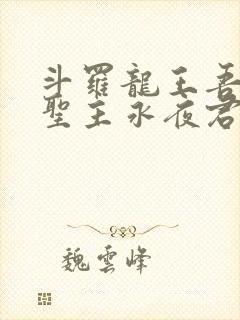 斗羅龍王吾
聖主永夜君
魏雲峰